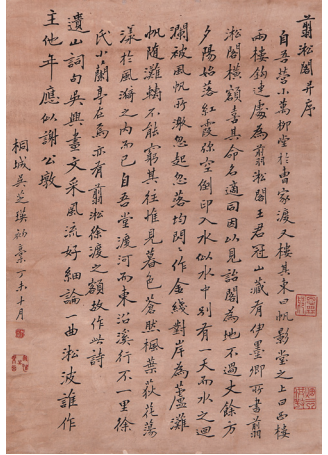 翦淞閣并序
自吾營小萬柳堂於曹家渡又樓其東曰帆影堂之上曰西樓
兩樓鉤連處為翦淞閣王君冠山藏有伊墨卿所書翦
淞閣橫額喜其命名適同因以見詒閣為地不過丈餘方
夕陽始落紅霞弥空倒印入水似水中別有一天而水之迴
瀾被風帆所激忽起忽落均閃作金綫對岸為蘆灘
帆隨灘轉不能窮其往惟見暮色蒼然楓葉荻花蕩
漾於風漪之內而已自吾堂渡河而東沿溪行不一里徐
氏小蘭亭在焉亦有翦淞徐渡之額故作此詩
遺山詞句吳興畫文采風流好細論一曲淞波誰作
主他年應似謝公墩
桐城吳芝瑛初稾丁未十月